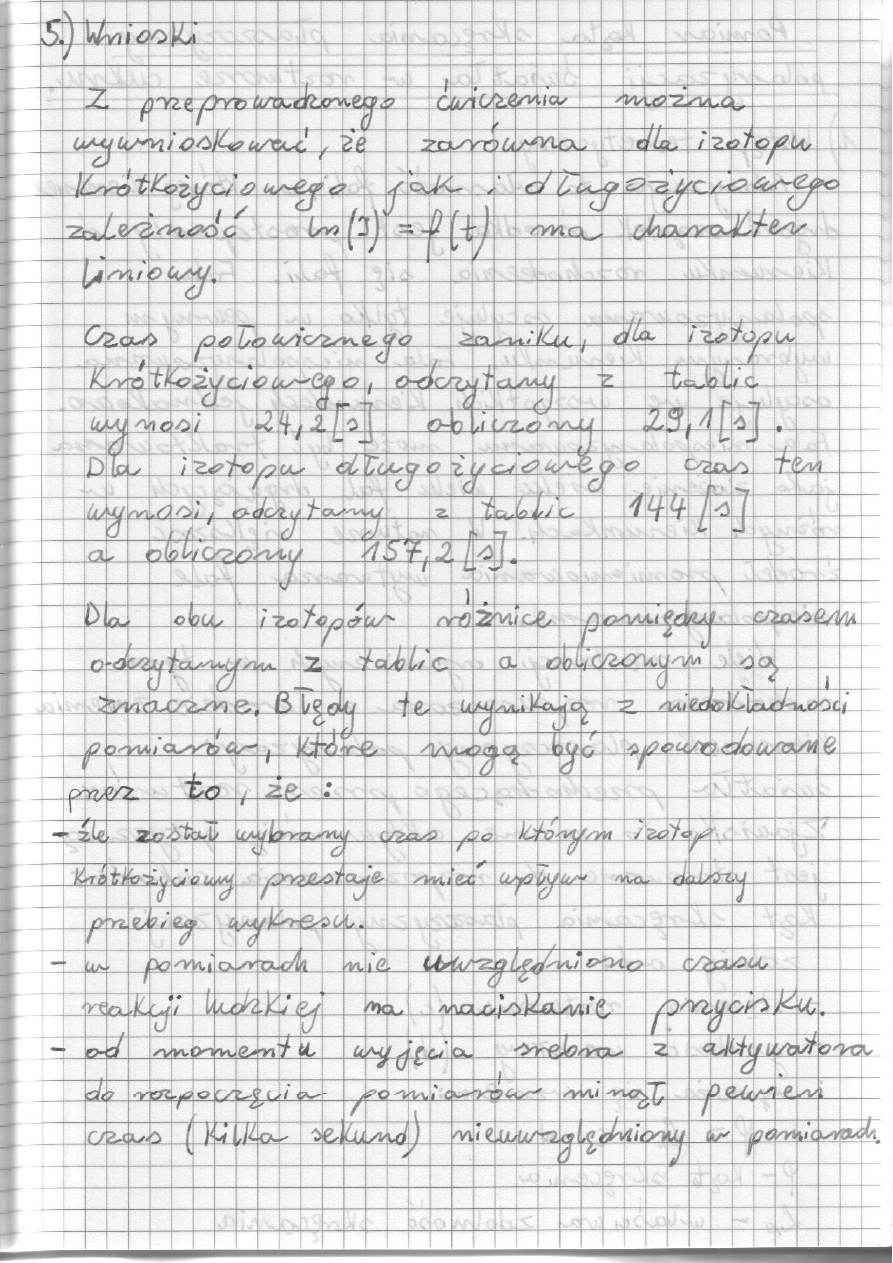 5.) Wnioski
Z przeprowadzonego ćwiczenia można
wywnioskować, że zarówna dla izotopu
krótkożyciowego jak i długożyciowego
zależność ln(J) = f(t) ma charakter
liniowy.
Czas połowicznego zaniku, dla izotopu
krótkożyciowego, odczytany z tablic
wynosi 24,2[s] obliczony 29,1[s].
Dla izotopu długożyciowego czas ten
wynosi, odczytany z tablic 144[s]
a obliczony 157,2[s].
Dla obu izotopów różnice pomiędzy czasem
odczytanym z tablic a obliczonym są
znaczne. Błędy te wynikają z niedokładności
pomiarów, które mogą być spowodowane
przez to, że:
- źle został wybrany czas po którym izotop
krótkożyciowy przestaje mieć wpływ na dalszy
przebieg wykresu.
- w pomiarach nie uwzględniono czasu
reakcji ludzkiej na naciskanie przycisku.
- od momentu wyjęcia srebra z aktywatora
do rozpoczęcia pomiarów minął pewien
czas (kilka sekund) nieuwzględniony w pomiarach.